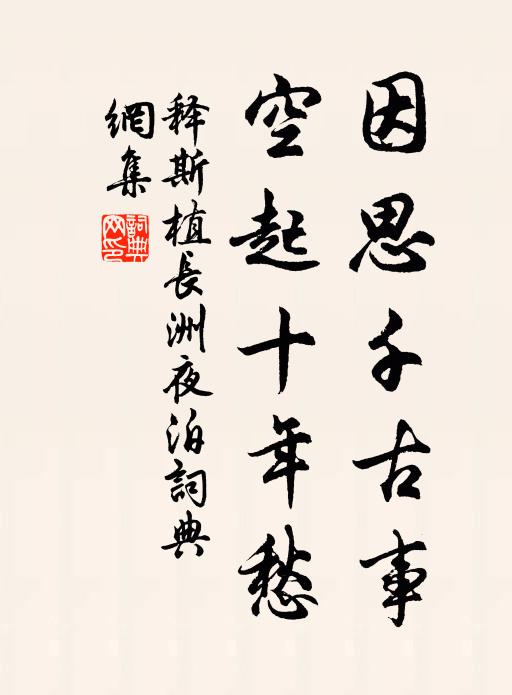 因思千古事
空起十年愁
释斯植長洲夜泊詞典
網集
詞典
网印